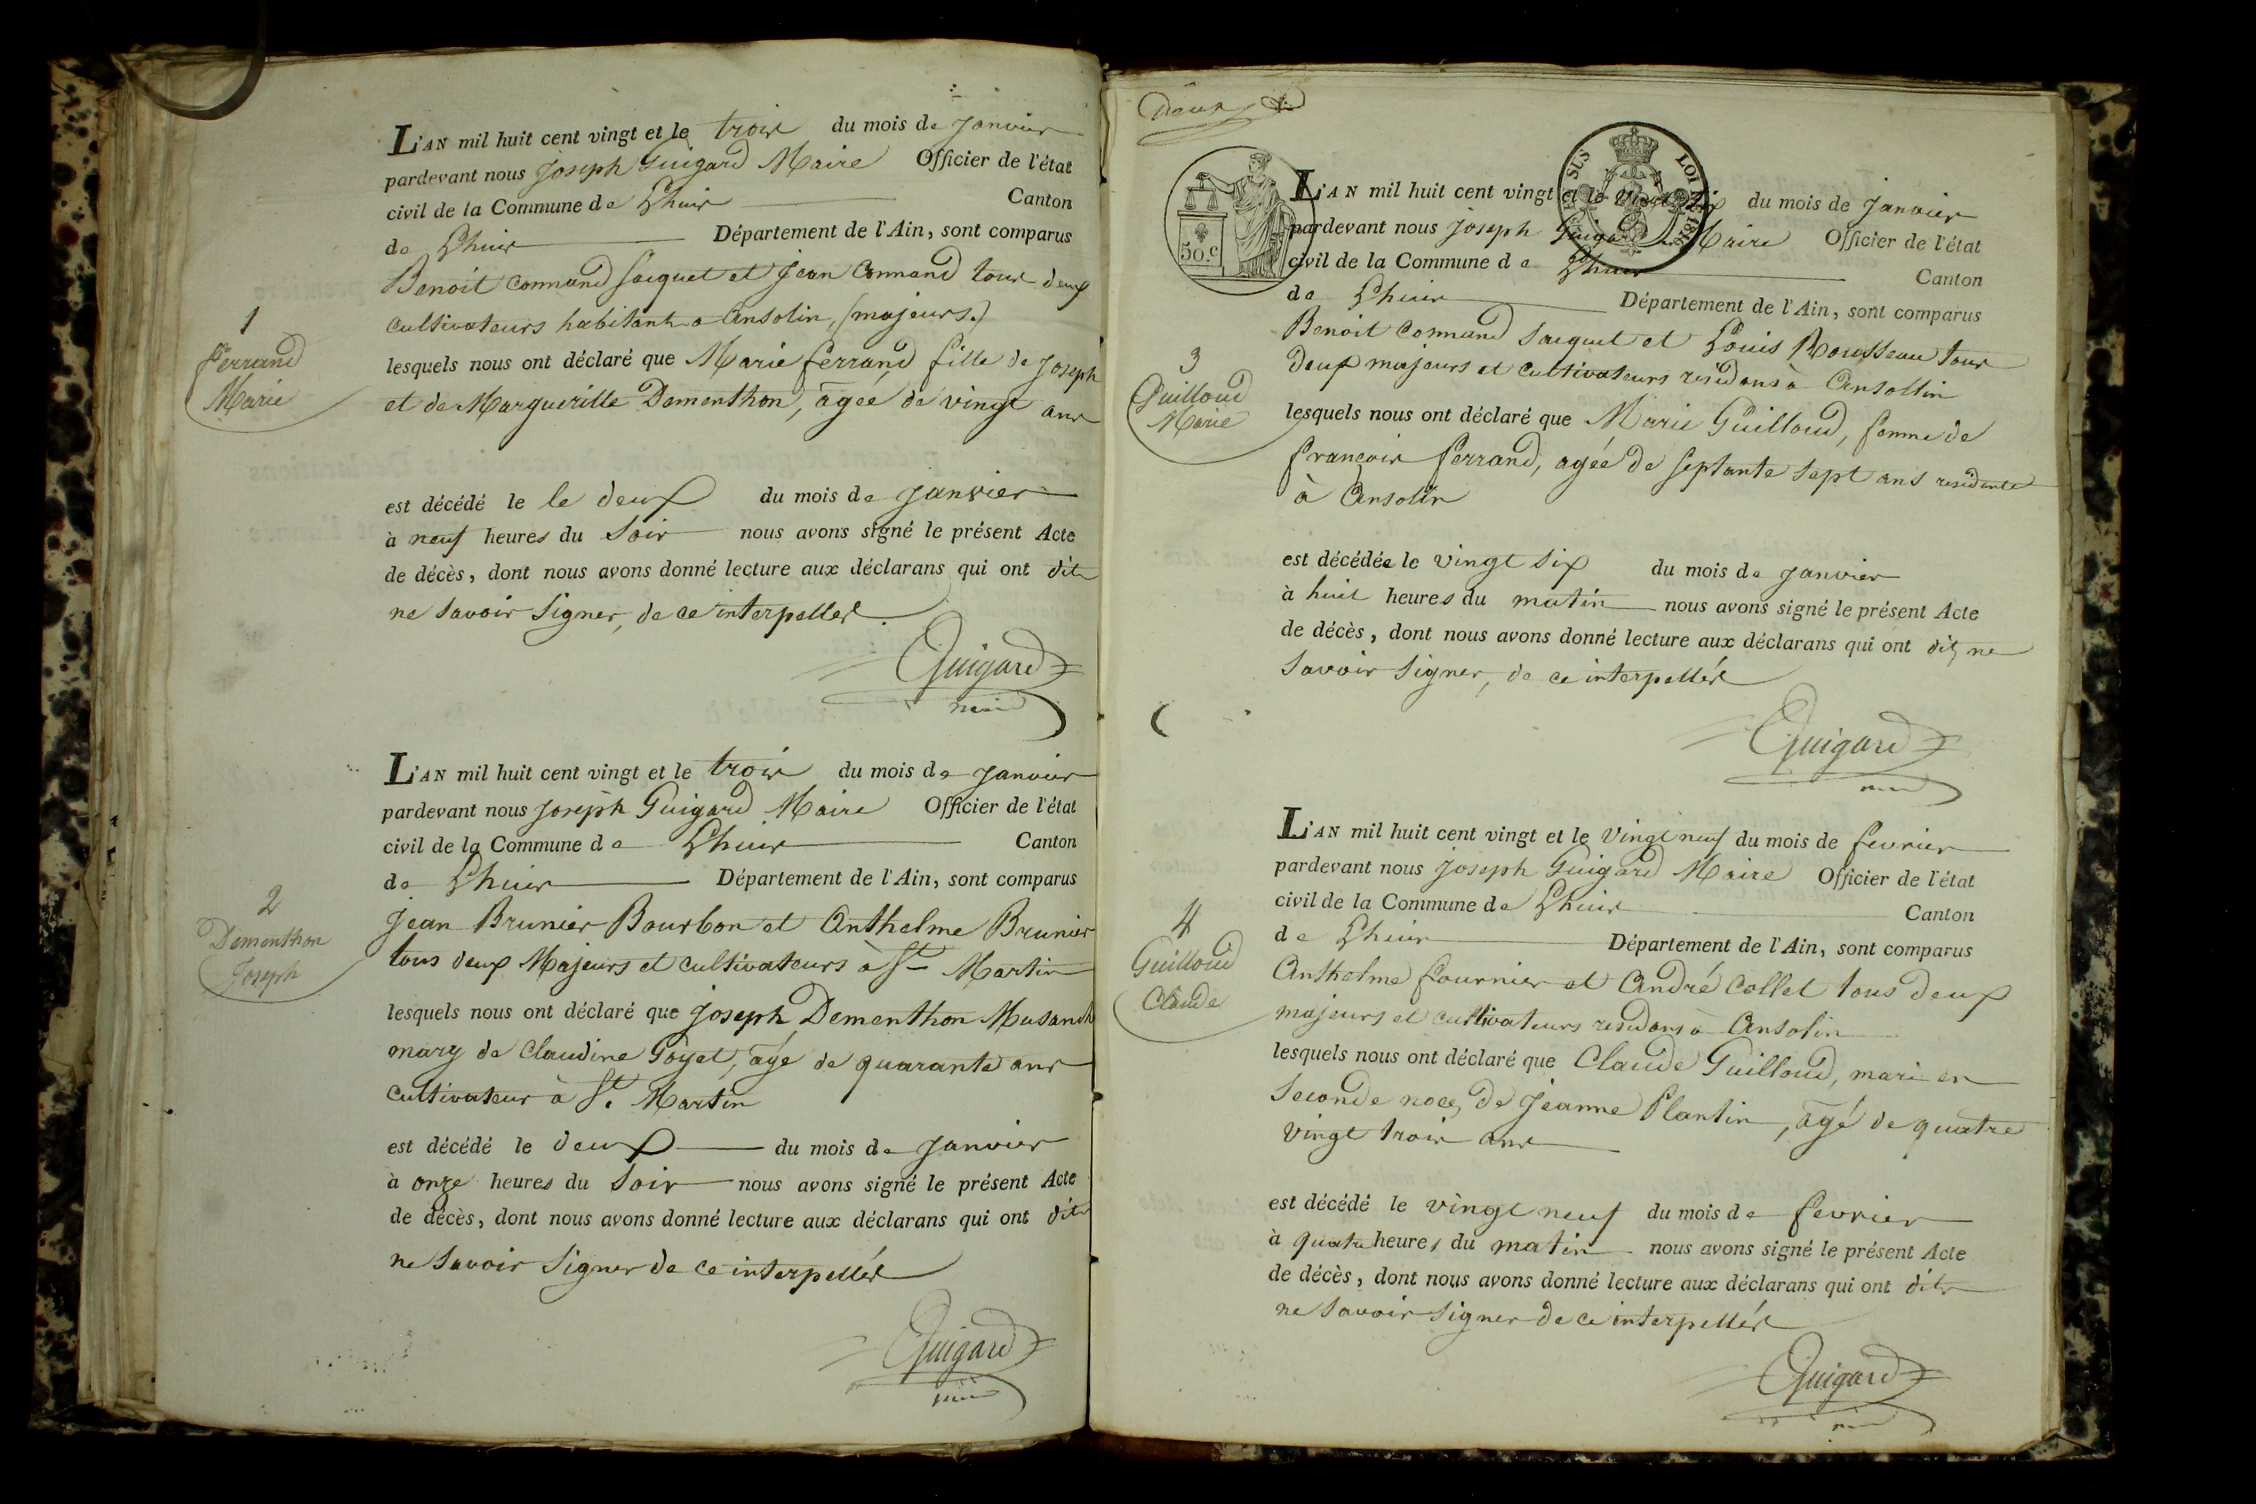 L'AN mil huit cent vingt et le trois du mois de janvier
pardevant nous Joseph Guigard Maire Officier de l'état
civil de la Commune de Lhuis Canton
de Lhuis Département de l'Ain, sont comparus
Benoit Connand Saquet et Jean Connand tous deux
cultivateurs habitant a Ansolin, (majeurs.)
1
Ferrand
Marie
lesquels nous ont déclaré que Marie ferrand fille de Joseph
et de Margueritte Dementhon, agée de vingt ans
est décédé le le deux du mois de janvier
à neuf heures du soir nous avons signé le présent Acte
de décès, dont nous avons donné lecture aux déclarans qui ont dits
ne savoir signer, de ce interpellés
Guigard
L'AN mil huit cent vingt et le trois du mois de janvier
pardevant nous Joseph Guigard Maire Officier de l'état
civil de la Commune de Lhuis Canton
de Lhuis Département de l'Ain, sont comparus
2
Dementhon
Joseph
Jean Brunier Bourbon et Anthelme Brunier
tous deux Majeurs et cultivateurs à St Martin
lesquels nous ont déclaré que Joseph Dementhon
mary de Claudine Goyet, agé de quarante ans
cultivateur à St. Martin
est décédé le deux du mois de janvier
à onze heures du soir nous avons signé le présent Acte
de décès, dont nous avons donné lecture aux déclarans qui ont dits
ne savoir signer de ce interpellés
Guigard
Deux
50.c
SUS LOI 1816
L'AN mil huit cent vingt et le vingt six du mois de janvier
pardevant nous Joseph Guigard Maire Officier de l'état
civil de la Commune de Lhuis Canton
de Lhuis Département de l'Ain, sont comparus
Benoit Connand Saquet et Louis Rousseau tous
deux majeurs et cultivateurs residans à Ansollin
3
Guilloud
Marie
lesquels nous ont déclaré que Marie Guilloud, femme de
françois ferrand, agée de septante sept ans residente
à Ansolin
est décédée le vingt six du mois de janvier
à huit heures du matin nous avons signé le présent Acte
de décès, dont nous avons donné lecture aux déclarans qui ont dit, ne
savoir signer, de ce interpellés
Guigard
L'AN mil huit cent vingt et le vingt neuf du mois de fevrier
pardevant nous Joseph Guigard Maire Officier de l'état
civil de la Commune de Lhuis Canton
de Lhuis Département de l'Ain, sont comparus
4
Guilloud
Claude
Anthelme fournier et André Collet tous deux
majeurs et cultivateurs residans à Ansolin
lesquels nous ont déclaré que Claude Guilloud, mari en
seconde noce, de Jeanne Plantin, agé de quatre
vingt trois ans
est décédé le vingt neuf du mois de fevrier
à quatre heures du matin nous avons signé le présent Acte
de décès, dont nous avons donné lecture aux déclarans qui ont dits
ne savoir signer de ce interpellés
Guigard